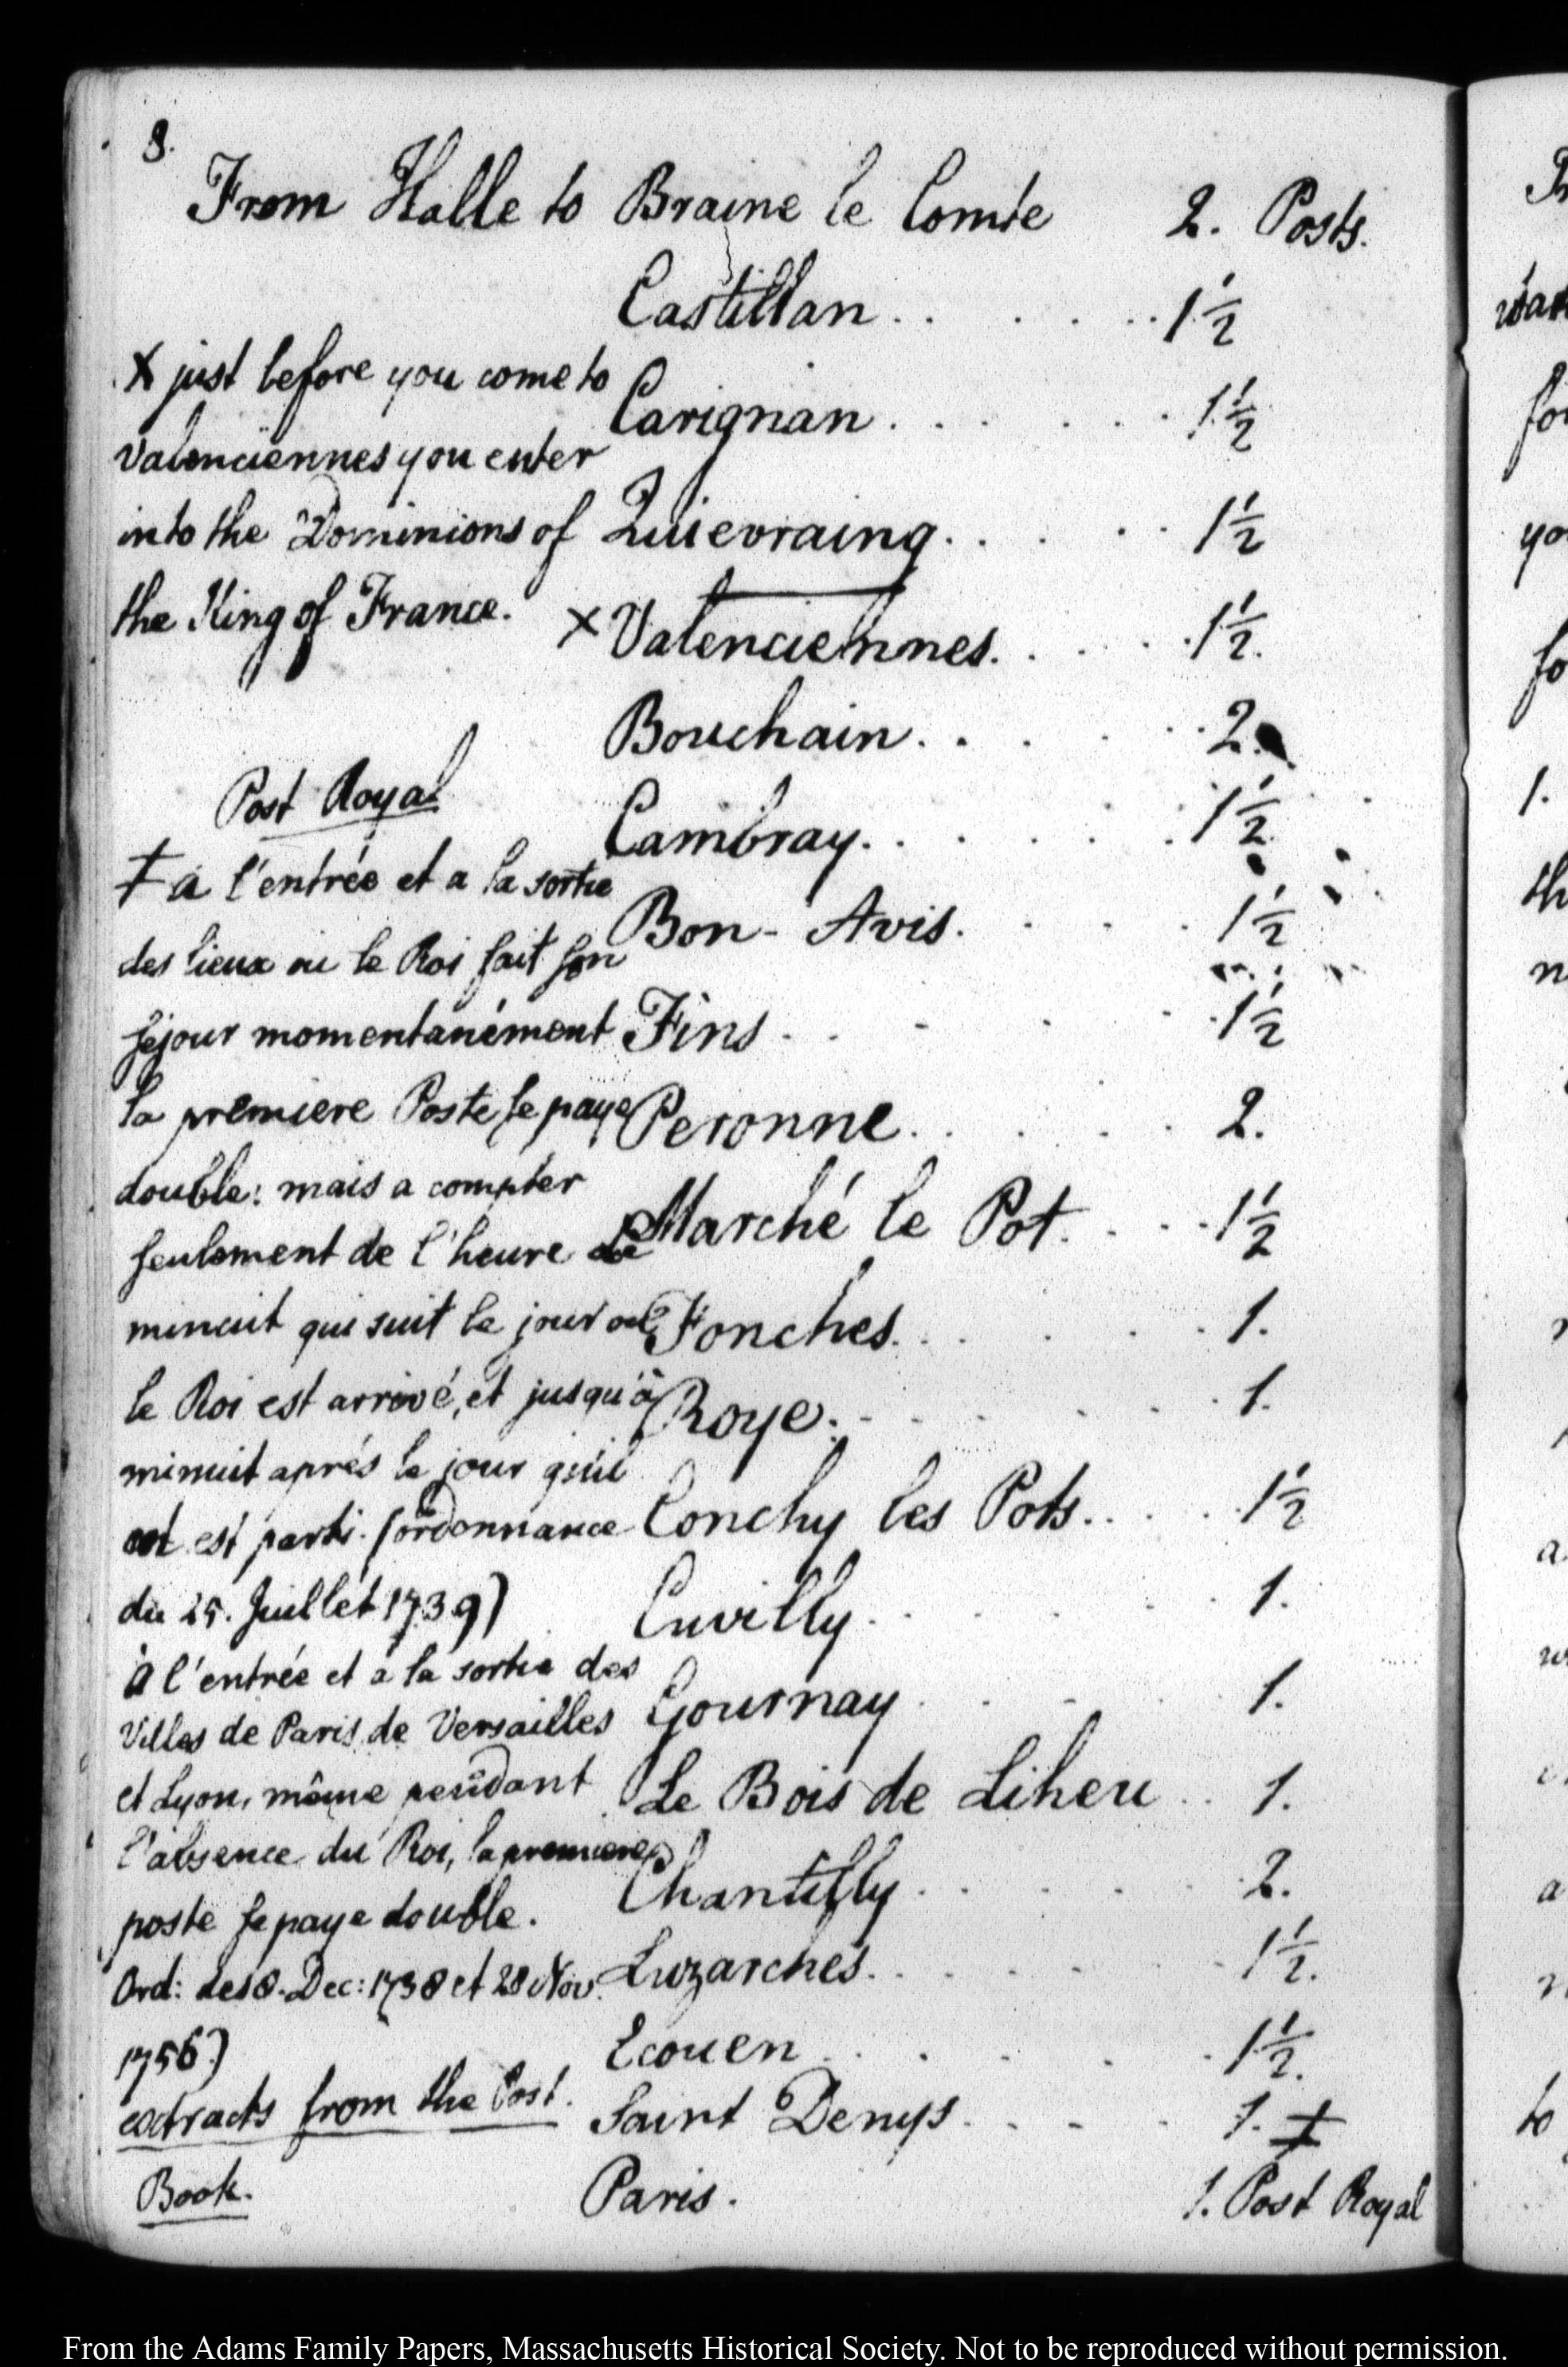 8.
From Halle to Braine le Comte 2. Posts.
Castillan . . . . . . 1½
Carignan . . . . . . 1½
Quievraing . . . . . 1½
x Valenciennes. . . . . 1½.
Bouchain . . . . . 2.
Cambray. . . . . . . 1½
Bon-Avis. . . . . 1½
Fins - . - . . 1½
Peronne. . . . . . 2.
Marché le Pot. . . . 1½
Fonches. . . . . . 1.
Roye. - . - . . . 1.
Conchy les Pots. . . . 1½
Cuvilly. . . . . . 1.
Gournay . . - . . 1.
Le Bois de Liheu . . 1.
Chantilly . . . . . . 2.
Luzarches. . . . . . 1½.
Ecouen . . . . . 1½.
Saint Denys. . - - . 1. ‡
Paris. 1. Post Royal
x just before you come to
Valenciennes you enter
into the Dominions of
the King of France.
Post Royal
‡ a l'entrée et a la sortie
des lieux ou le Roi fait son
sejour momentanément
la premiere Poste se paye
double: mais a compter
seulement de l'heure de
minuit qui suit le jour ou
le Roi est arrivé, et jusqu'à
minuit aprés le jour qu'il
est parti. (ordonnance
du 25. Juillet 1739)
à l'entrée et a la sortie des
Villes de Paris, de Versailles
et Lyon, même pendant
l'absence du Roi, la premiere
poste se paye double.
Ord: des 8. Dec: 1738 et 28 Nov.
1756)
extracts from the Post.
Book.
From the Adams Family Papers, Massachusetts Historical Society. Not to be reproduced without permission.